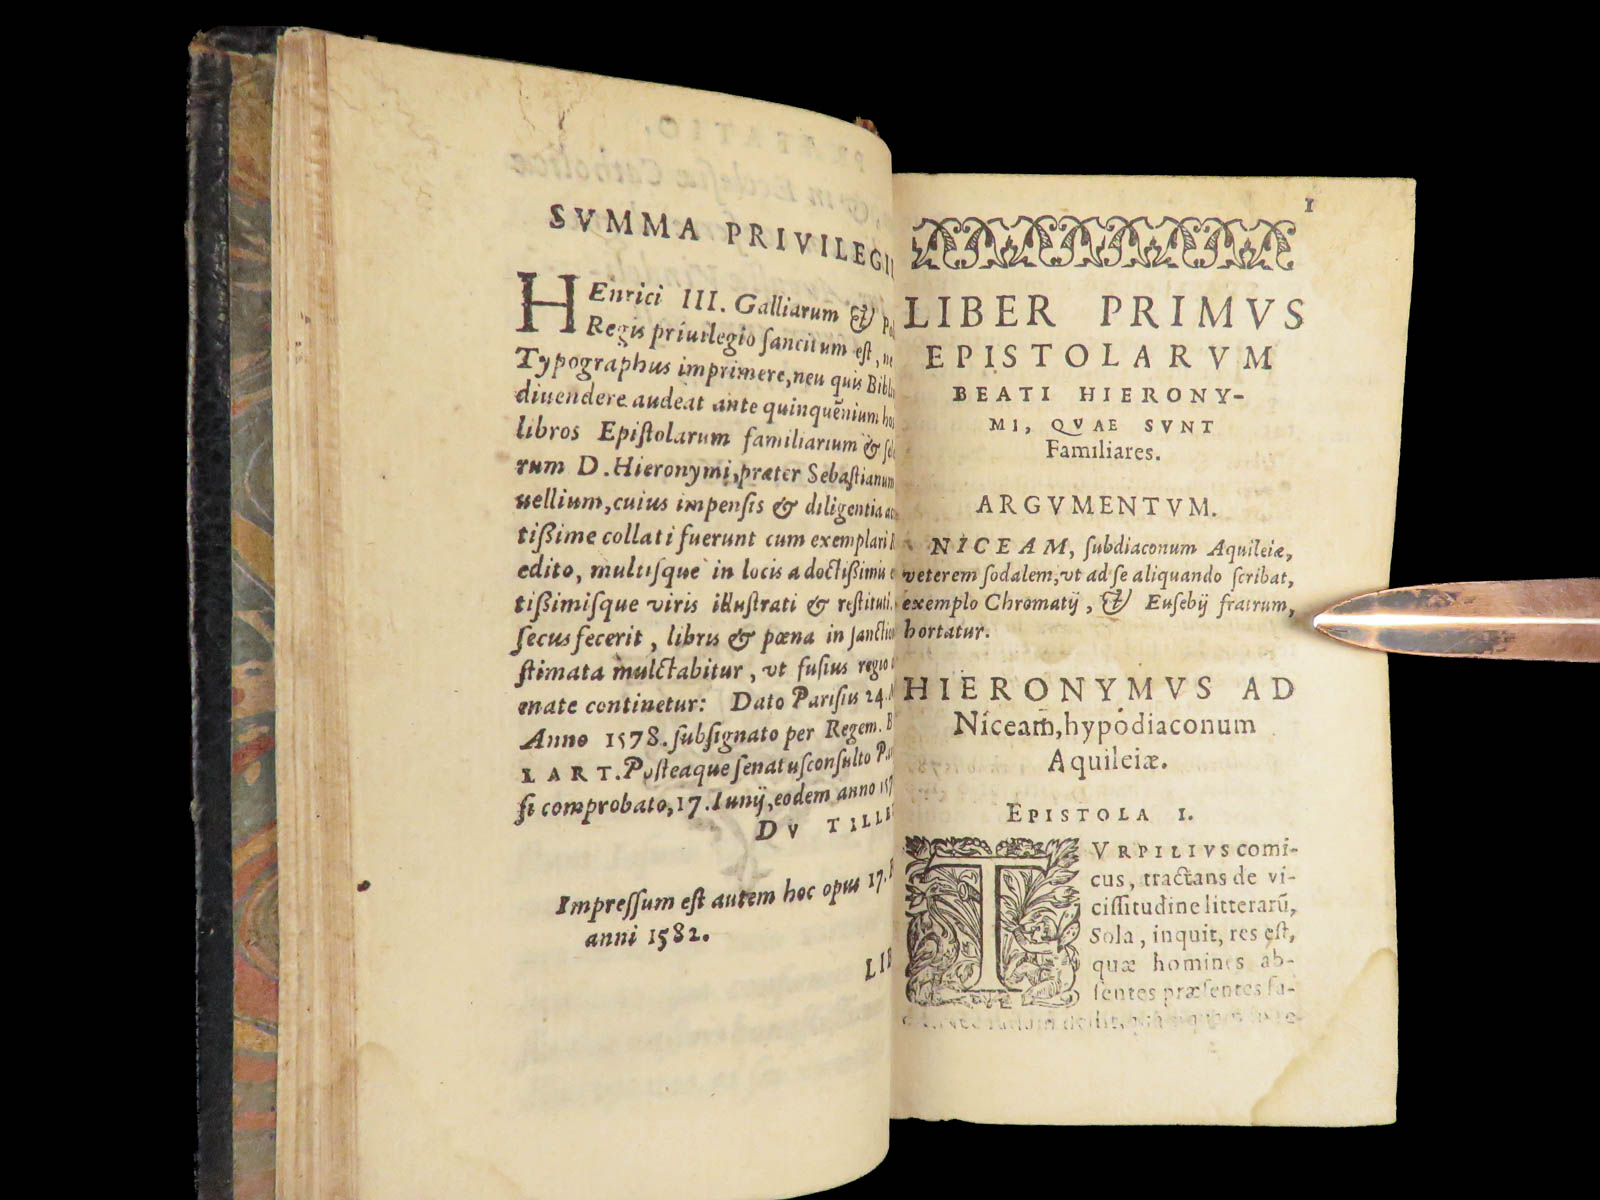 SVMMA PRIVILEGII
HEnrici III. Galliarum &
Regis priuilegio ſancitum eſt, ne
Typographus imprimere, neu quis
diuendere audeat ante quinquẽnium
libros Epiſtolarum familiarium &
rum D. Hieronymi, præter Sebaſtianum
uellium, cuius impenſis & diligentia
tißime collati fuerunt cum exemplari
edito, multiſque in locis a doctißimis
tißimiſque viris illuſtrati & reſtituti,
ſecus fecerit, libris & pœna in ſanctio
ſtimata mulctabitur, vt fuſius regio
mate continetur: Dato Pariſiis 24.
Anno 1578. ſubſignato per Regem.
LART. Poſteaque ſenatuſconſulto
ſi comprobato, 17. Iunij, eodem anno
DV TILLE
Impreſſum eſt autem hoc opus 17.
anni 1582.
LIB
1
LIBER PRIMVS
EPISTOLARVM
BEATI HIERONY-
MI, QVAE SVNT
Familiares.
ARGVMENTVM.
NICEAM, ſubdiaconum Aquileiæ,
veterem ſodalem, vt ad ſe aliquando ſcribat,
exemplo Chromatij, & Euſebij fratrum,
hortatur.
HIERONYMVS AD
Niceam, hypodiaconum
Aquileiæ.
EPISTOLA I.
TVRPILIVS comi-
cus, tractans de vi-
ciſſitudine litterarũ,
Sola, inquit, res eſt,
quæ homines ab-
ſentes præſentes fa-